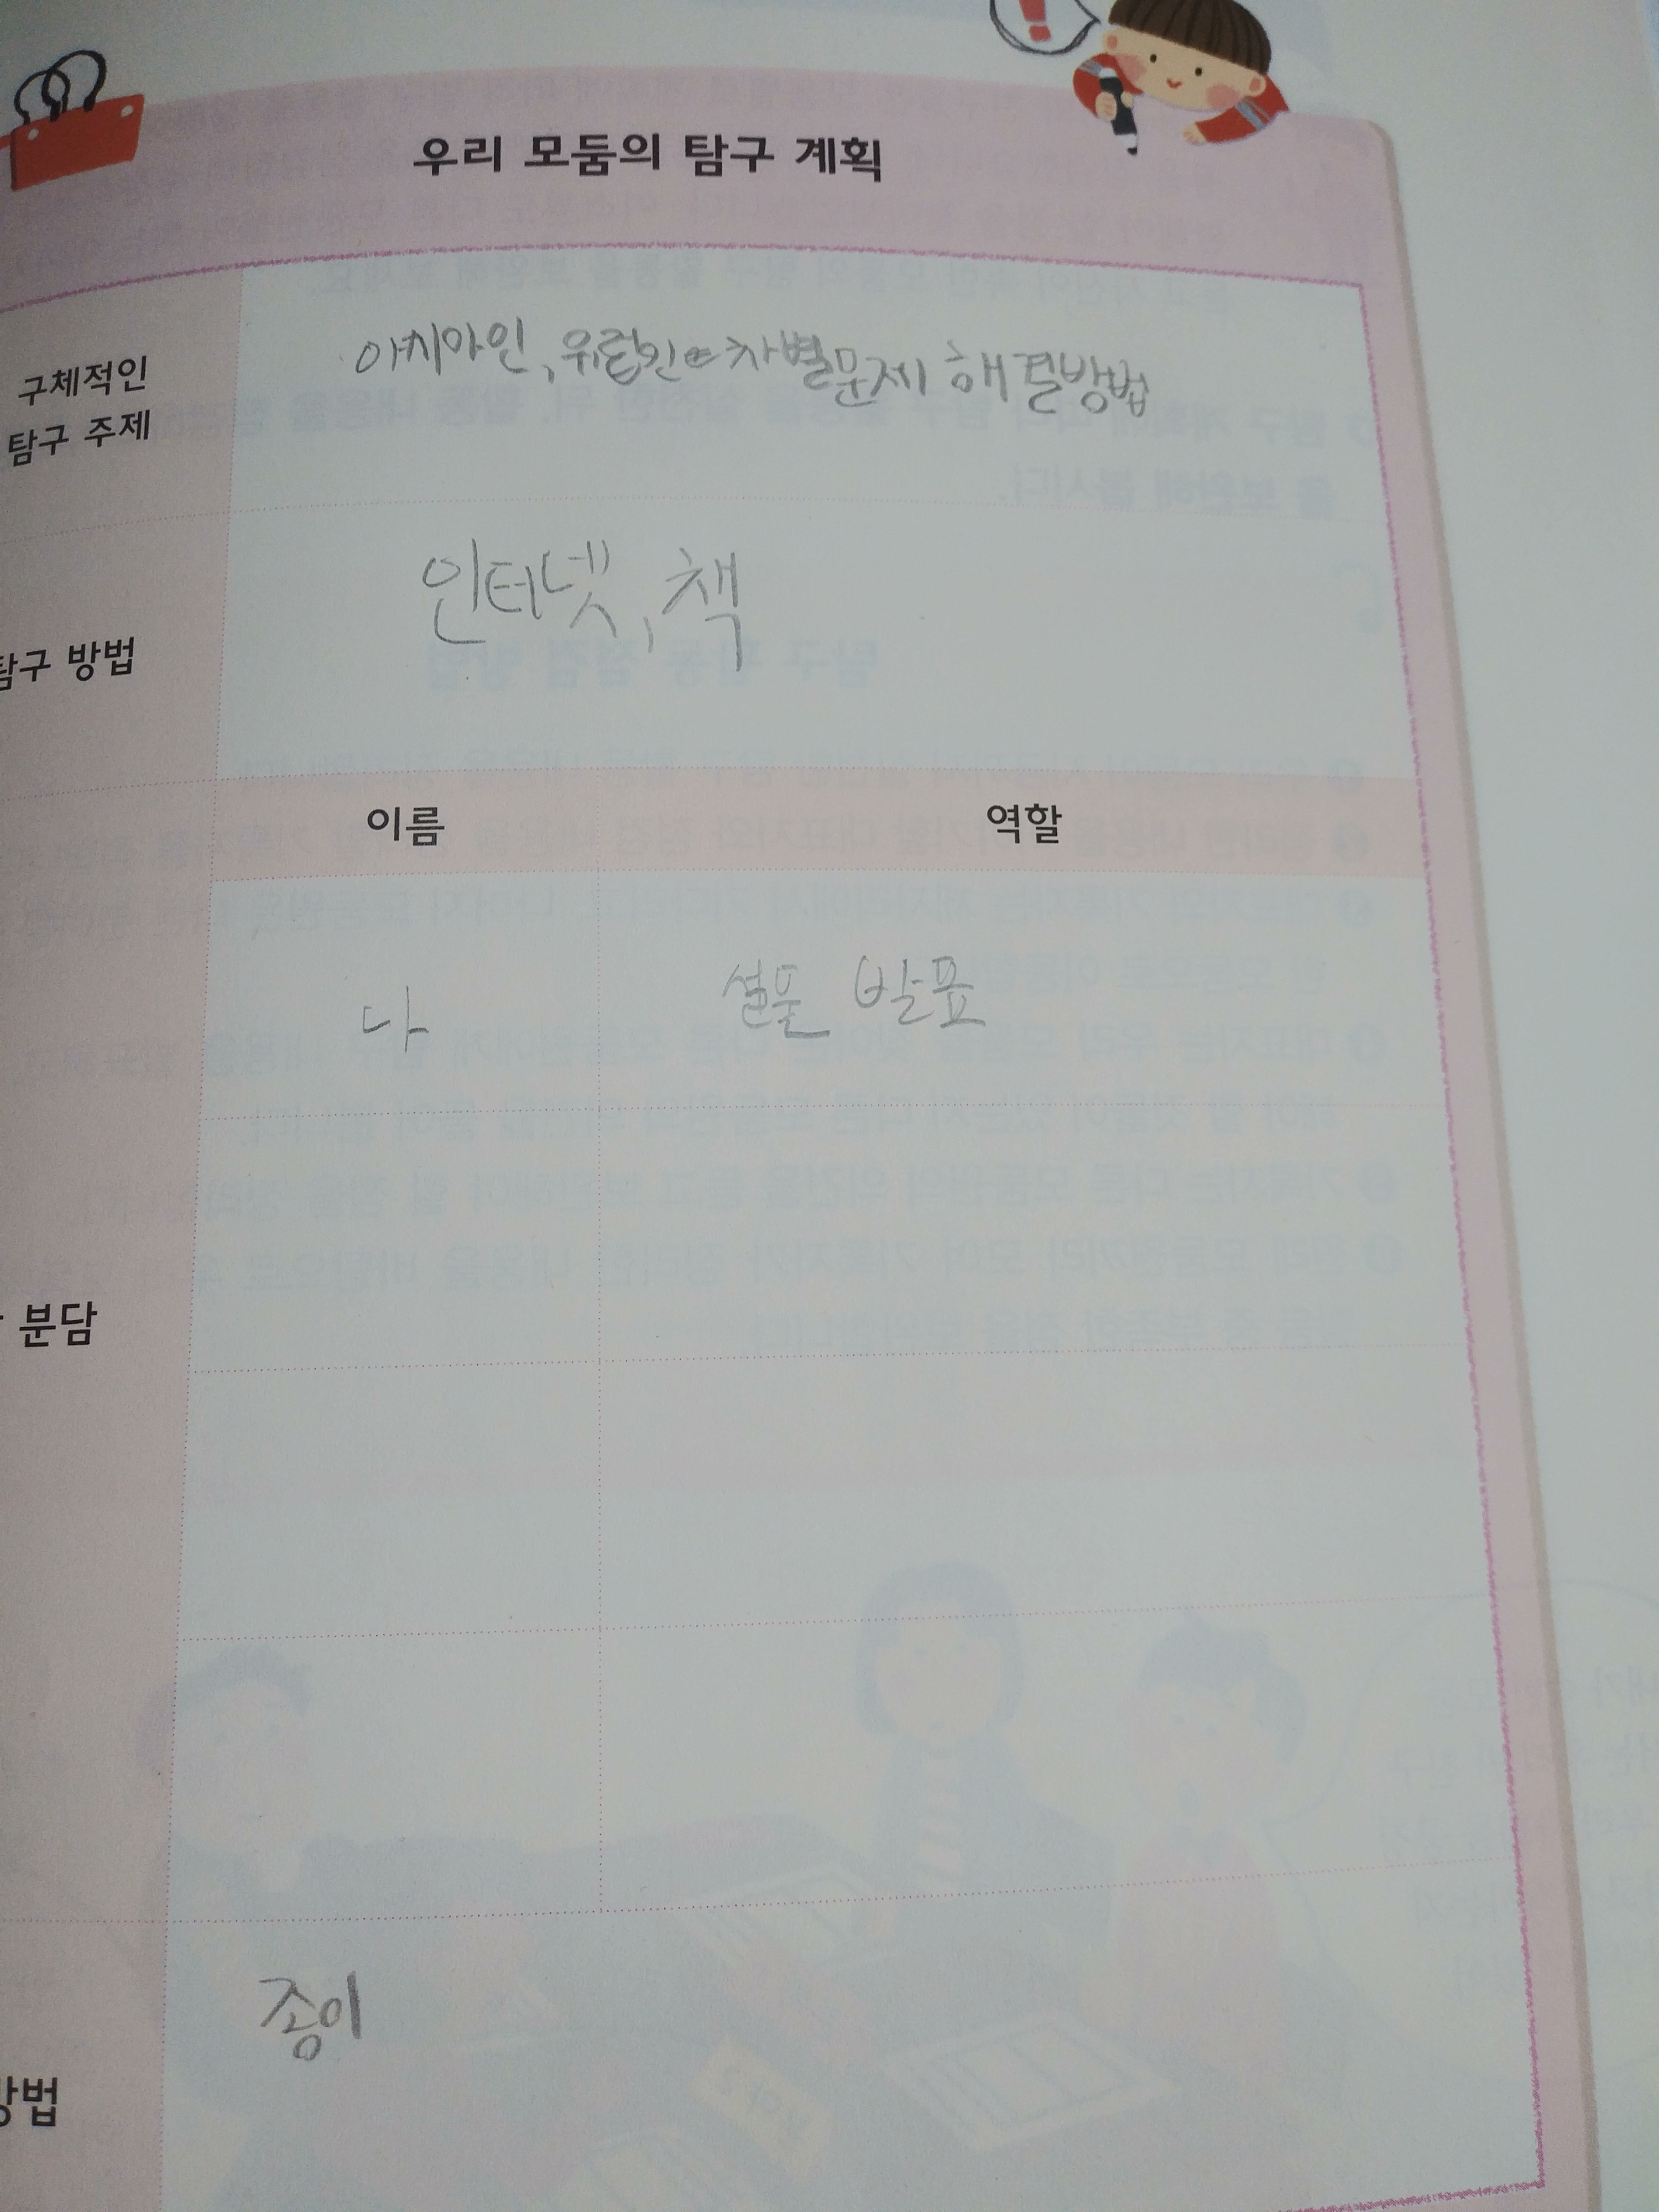 !
우리 모둠의 탐구 계획
구체적인
탐구 주제
아시아인, 유럽인 차별문제 해결방법
탐구 방법
인터넷, 책
이름
역할
나
발표
분담
종이
방법